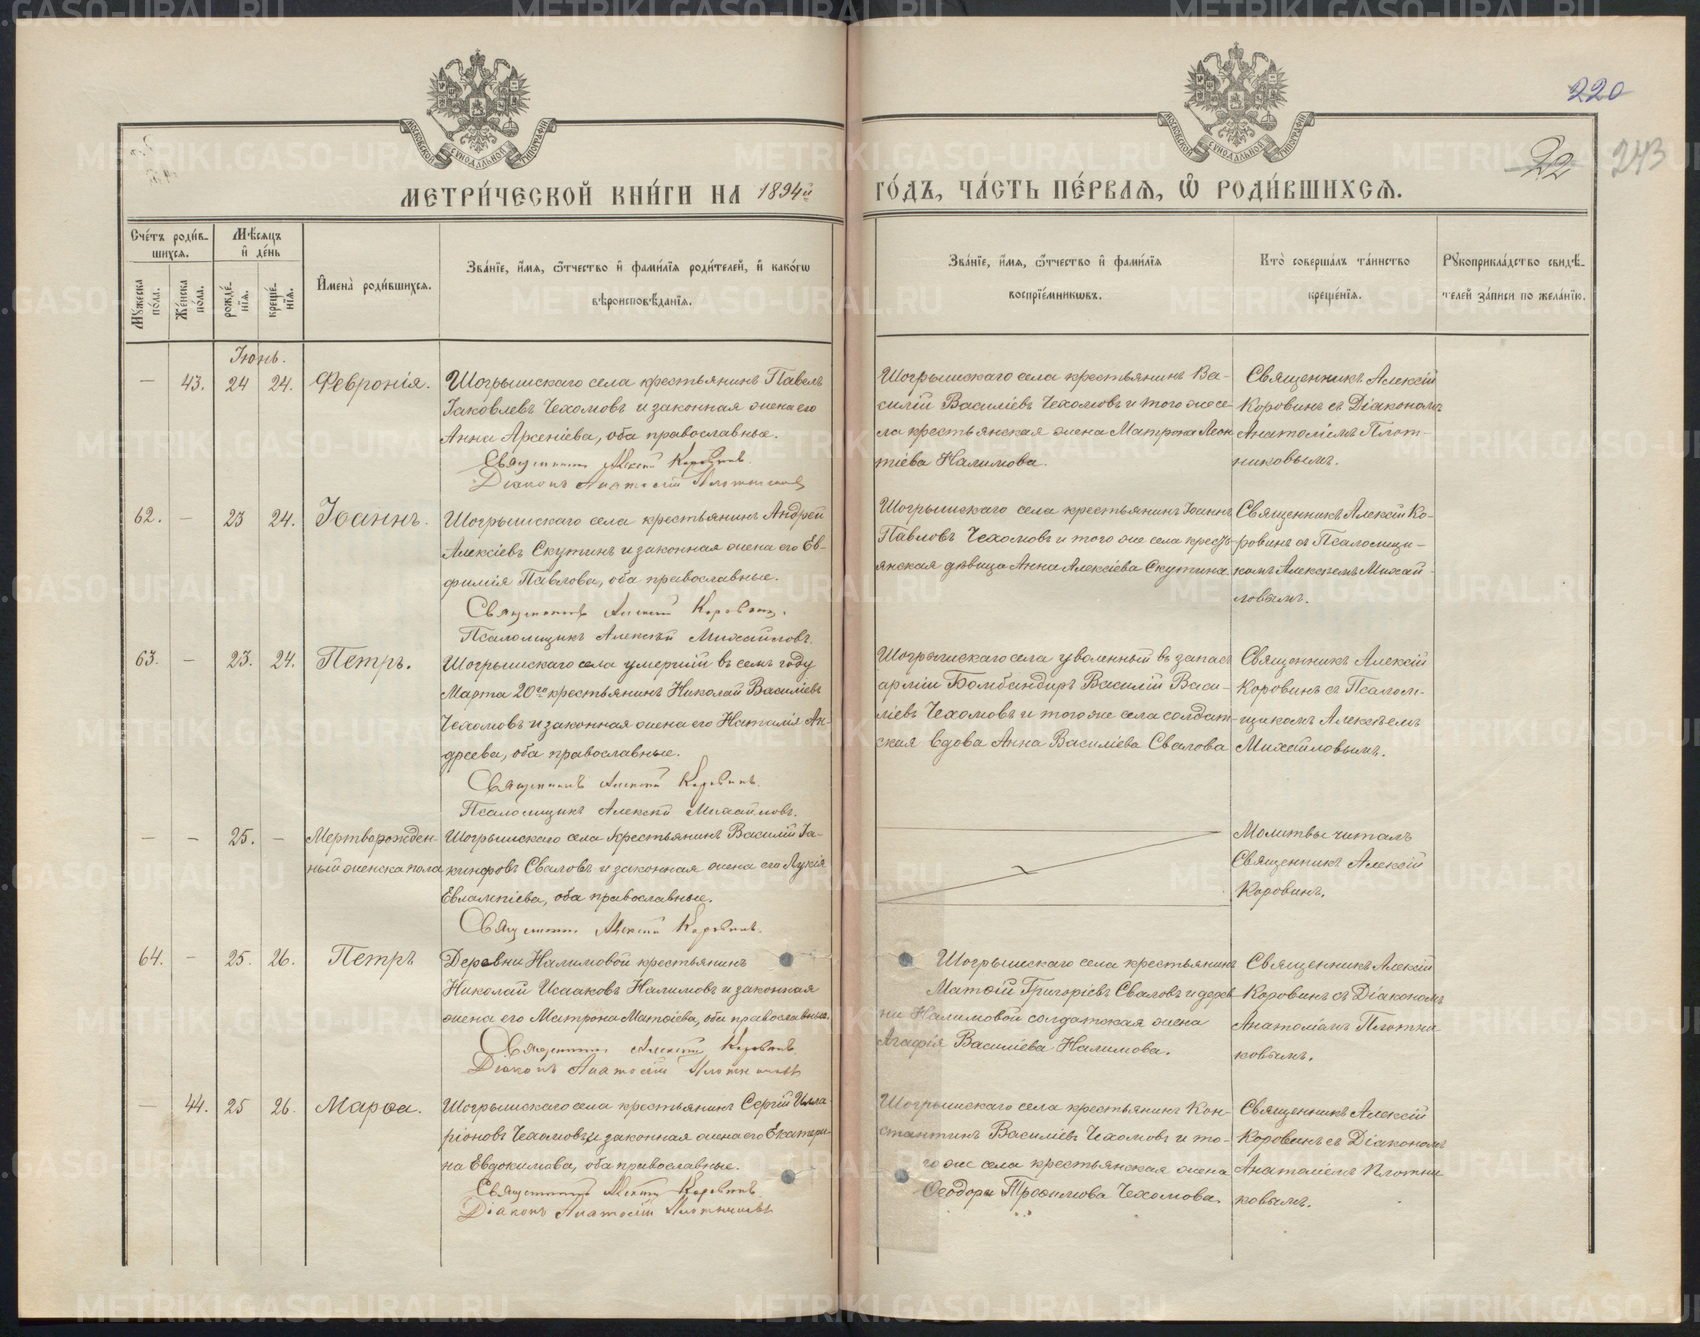 220
22
243
МЕТРИ́ЧЕСКОЙ КНИ́ГИ НА 1894й ГО́ДЪ, ЧА́СТЬ ПЕ́РВАѦ, Ѽ РОДИ́ВШИХСѦ.
Сче́тъ роди́в-
шихсѧ.
Мꙋжеска по́ла.
Же́нска по́ла.
Мѣ́сѧцъ и҆ де́нь
рожде́-нїѧ.
креще́-нїѧ.
И҆мена̀ роди́вшихсѧ.
Зва́нїе, и҆́мѧ, ѻ҆́тчество и҆ фами́лїѧ роди́телей, и҆ како́гѡ
вѣроисповѣ́данїѧ.
Зва́нїе, и҆́мѧ, ѻ҆́тчество и҆ фами́лїѧ
воспрїе́мникѡвъ.
Кто̀ соверша́лъ та́инство
креще́нїѧ.
Рꙋкоприкла́дство свидѣ́-
телей за́писи по жела́нїю.
Іюнь.
— 43. 24 24. Февронія.
Шогрышскаго села крестьянинъ Павелъ
Іаковлевъ Чехомовъ и законная жена его
Анна Арсеніева, оба православные.
Священникъ Алексій Коровинъ.
Діаконъ Анатолій Плотниковъ
Шогрышскаго села крестьянинъ Ва-
силій Василіевъ Чехомовъ и того же се-
ла крестьянская жена Матрона Леон
тіева Налимова.
Священникъ Алексій
Коровинъ съ Діакономъ
Анатоліемъ Плот-
никовымъ.
62. — 23 24. Іоаннъ.
Шогрышскаго села крестьянинъ Андрей
Алексіевъ Скутинъ и законная жена его Ев-
фимія Павлова, оба православные.
Священникъ Алексій Коровинъ.
Псаломщикъ Алексѣй Михайловъ.
Шогрышскаго села крестьянинъ Іоаннъ
Павловъ Чехомовъ и того же села кресть-
янская дѣвица Анна Алексіева Скутина.
Священникъ Алексій Ко-
ровинъ съ Псаломщи-
комъ Алексѣемъ Михай-
ловымъ.
63. — 23. 24. Петръ.
Шогрышскаго села умершій въ семъ году
Марта 20го крестьянинъ Николай Василіевъ
Чехомовъ и законная жена его Наталія Ан-
дреева, оба православные.
Священникъ Алексій Коровинъ.
Псаломщикъ Алексѣй Михайловъ.
Шогрышскаго села уволенный въ запасъ
арміи Бомбандиръ Василій Васи-
ліевъ Чехомовъ и того же села солдат-
ская вдова Анна Василіева Свалова
Священникъ Алексій
Коровинъ съ Псалом-
щикомъ Алексѣемъ
Михайловымъ.
— — 25. — Мертворожден-
ный женска пола
Шогрышскаго села крестьянинъ Василій Іа-
кинфовъ Сваловъ и законная жена его Лукія
Евлампіева, оба православные.
Священникъ Алексій Коровинъ.
Молитвы читалъ
Священникъ Алексій
Коровинъ.
64. — 25. 26. Петръ
Деревни Налимовой крестьянинъ
Николай Исааковъ Налимовъ и законная
жена его Матрона Матѳіева, оба православные.
Священникъ Алексій Коровинъ
Діаконъ Анатолій Плотниковъ
Шогрышскаго села крестьянинъ
Матѳій Григоріевъ Сваловъ и дерев
ни Налимовой солдатская жена
Агафія Василіева Налимова.
Священникъ Алексій
Коровинъ съ Діакономъ
Анатоліемъ Плотни
ковымъ.
— 44. 25 26. Марѳа.
Шогрышскаго села крестьянинъ Сергій Илла
ріоновъ Чехомовъ и законная жена его Екатери-
на Евдокимова, оба православные.
Священникъ Алексій Коровинъ
Діаконъ Анатолій Плотниковъ
Шогрышскаго села крестьянинъ Кон-
стантинъ Василіевъ Чехомовъ и то-
го же села крестьянская жена
Ѳеодора Трофимова Чехомова.
Священникъ Алексій
Коровинъ съ Діакономъ
Анатоліемъ Плотни
ковымъ.
METRIKI.GASO-URAL.RU